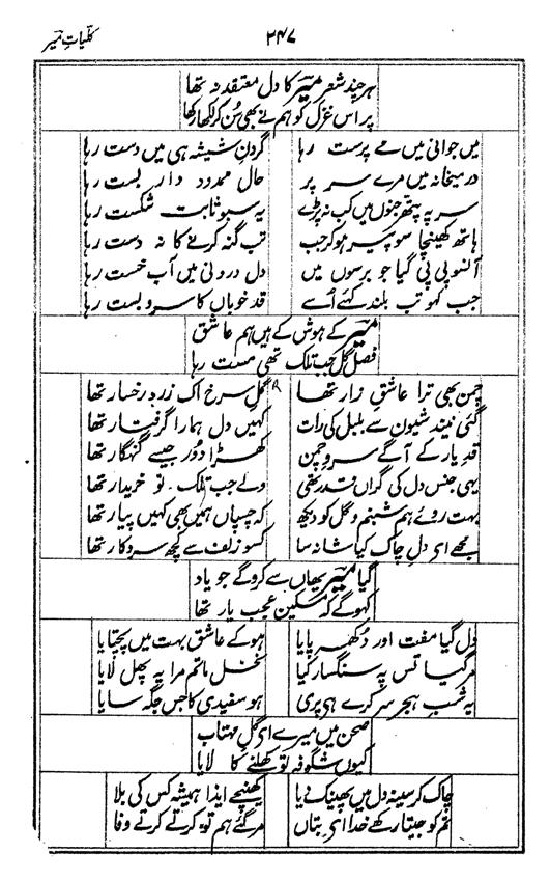 کلیاتِ میر
۲۴۷
ہرچند شعر میر کا دل معتقد نہ تھا
پر اس غزل کو ہم نے بھی سن کر لکھا رکھا
میں جوانی میں مے پرست رہا گردنِ شیشہ ہی میں دست رہا
در میخانہ میں مرے سر پر حال ممدود دار بست رہا
سر پہ پتھر جنوں میں کب نہ پڑے یہ سبو ثابت شکست رہا
ہاتھ کھینچا سو پیر ہو کر جب تب گنہ کرنے کا نہ دست رہا
آنسو پی پی گیا جو برسوں میں دل درونی میں آب خست رہا
جب کہو تب بلند کہئے اُسے قد خوباں کا سرو بست رہا
میر کے ہوش کے ہیں ہم عاشق
فصلِ گل جب تلک تھی مست رہا
چمن بھی ترا عاشقِ زار تھا گلِ سرخ اک زرد رخسار تھا
گئی نیند شیون سے بلبل کی رات کہیں دل ہمارا گرفتار تھا
قدِ یار کے آگے سروِ چمن کھڑا دُور جیسے گنہگار تھا
یہی جنس دل کی گراں قدر تھی ولے جب تلک تو خریدار تھا
بہت روئے ہم شبنم و گل کو دیکھ کہ چسپاں ہمیں بھی کہیں پیار تھا
مجھے ای دلِ چاک کیا شانہ سا کسو زلف سے کچھ سروکار تھا
گیا میر یھاں سے کروگے جو یاد
کہوگے کہ مسکین عجب یار تھا
دل گیا مفت اور دُکھ پایا ہو کے عاشق بہت میں پچتایا
مر گیا تس پہ سنگسار کیا نخلِ ماتم مرا یہ پھل لایا
یہ شبِ ہجر سر کرے ہی پری ہو سفیدی کا جس جگہ سایا
صحن میں میرے ای گلِ مہتاب
کیوں شگوفہ تو کھلنے کا لایا
چاک کر سینہ دل میں پھینک دیا کھینچے ایذا ہمیشہ کس کی بلا
تم کو جیتا رکھے خدا ای بتاں مر گئے ہم تو کرتے کرتے وفا